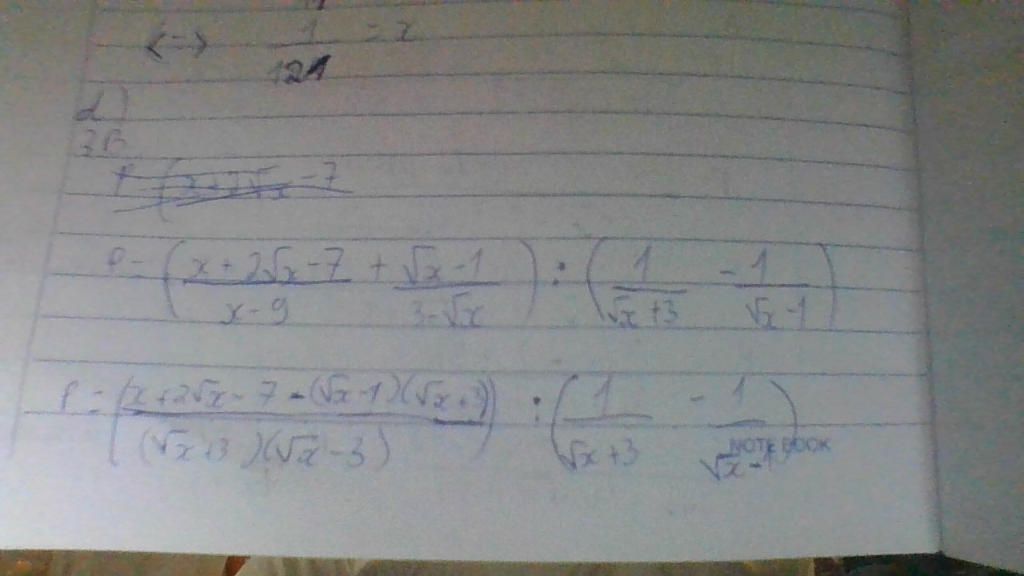 <-> 1/121 = x
2)
3B
P = (x+2√x - 7
P = ( (x + 2√x - 7)/(x - 9) + (√x - 1)/(3 - √x) ) : ( 1/(√x + 3) - 1/(√x - 1) )
P = ( (x + 2√x - 7 - (√x - 1)(√x + 3))/((√x + 3)(√x - 3)) ) : ( 1/(√x + 3) - 1/(√x - 1) )
NOTEBOOK